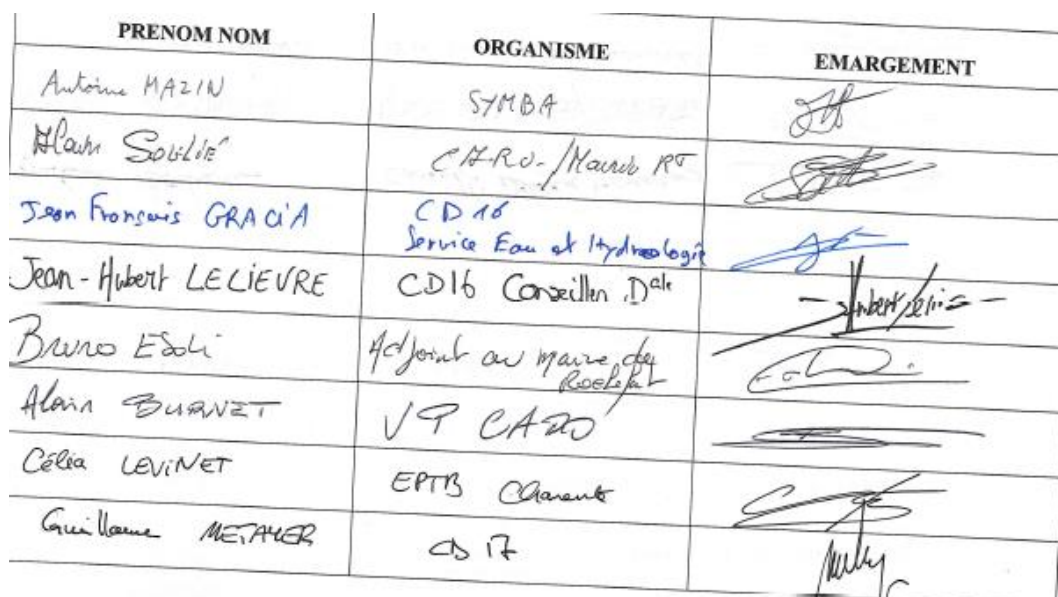 PRENOM NOM ORGANISME EMARGEMENT
Antoine MAZIN SYMBA
Alain SOULIÉ C.A.R.O./Mairie RT
Jean François GRACIA CD 16
Service Eau et Hydrologie
Jean-Hubert LELIEVRE CD16 Conseiller Dale
Bruno Adjoint au maire de
Rochefort
Alain BURNET VP CARO
Célia LEVINET EPTB Charente
Guillaume METAYER CD 17